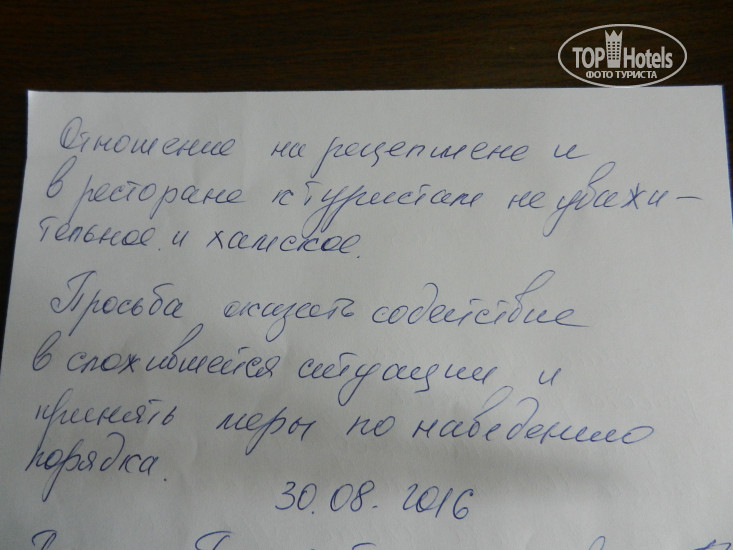 TOP Hotels
ФОТО ТУРИСТА
Отношение на рецепшене и
в ресторане к туристам не уважи-
тельное и хамское.
Просьба оказать содействие
в сложившейся ситуации и
принять меры по наведению
порядка.
30.08.2016